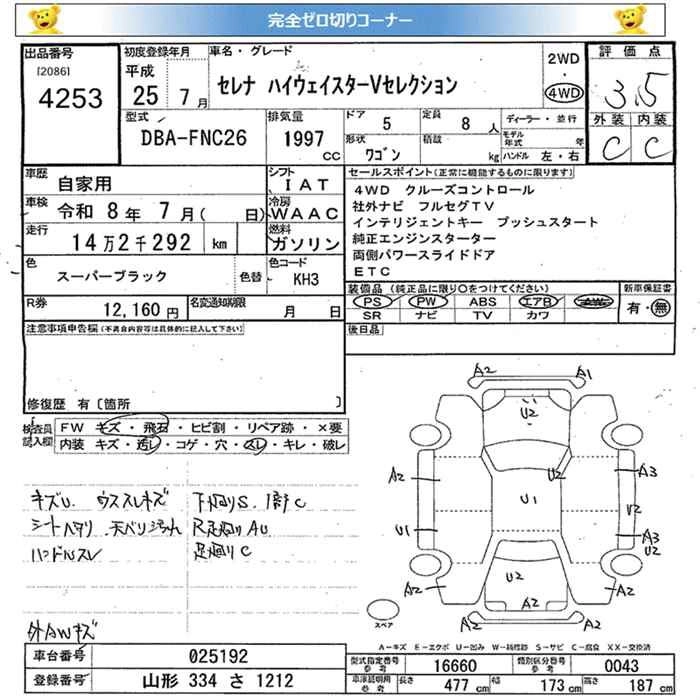 完全ゼロ切りコーナー
出品番号
[2086]
4253
初度登録年月
平成
25 7月
車名・グレード
セレナ ハイウェイスターVセレクション
2WD
・
4WD
評価点
3.5
外装 内装
C C
型式
DBA-FNC26
排気量
1997
CC
ドア 5
定員 8人
形状 ワゴン
積載 kg
ディーラー・並行
モデル年式 年
ハンドル 左・右
車歴 自家用
シフト IAT
車検 令和 8年 7月( 日)
冷房 WAAC
走行 14万2千292 km
燃料 ガソリン
色 スーパーブラック
色替
色コード KH3
R券 12,160円
名変通知期限 月 日
セールスポイント(正常に機能するものに限ります)
4WD クルーズコントロール
社外ナビ フルセグTV
インテリジェントキー プッシュスタート
純正エンジンスターター
両側パワースライドドア
ETC
装備品(純正品に限り〇をつけてください)
PS PW ABS エアB
SR ナビ TV カワ
新車保証書
有・無
後日品
注意事項申告欄(不具合内容等は具体的に記入して下さい)
修復歴 有〔箇所 〕
検査員記入欄
FW キズ・飛石・ヒビ割・リペア跡・×要
内装 キズ・汚レ・コゲ・穴・スレ・キレ・破レ
キズU. ウススレキズ 下廻りS. 1部C
シートヘタリ 天ベリ汚れ R足廻りAU
ハンドルスレ 足廻りC
外AWキズ
A2 A1
U2
A2 U2 A3
U1
U1 U2
A3
U2
A2 U2 A2
A2 A2
スペア
A-キズ E-エクボ U-凹み W-補修跡 S-サビ C-腐食 XX-交換済
車台番号 025192
登録番号 山形 334 さ 1212
型式指定番号 参考 16660
類別区分番号 参考 0043
車検証明用 参考 長さ 477cm 幅 173cm 高さ 187cm